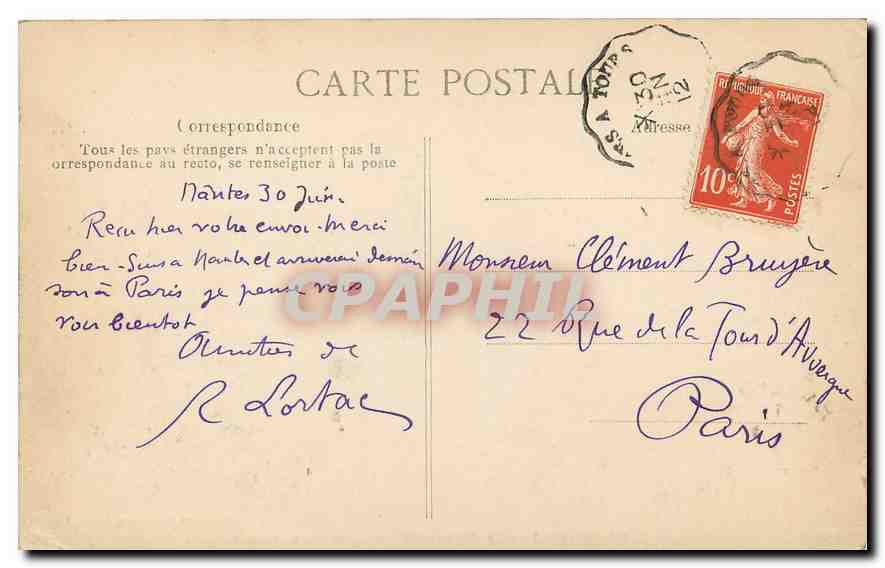 CARTE POSTALE
Correspondance
Tous les pays étrangers n'acceptent pas la
orrespondance au recto, se renseigner à la poste
Adresse
RS A TOURS
30
12
REPUBLIQUE FRANÇAISE
10c
POSTES
Nantes 30 Juin.
Recu hier votre envoi. Merci
bien - Suis a Nantes et arriverai demain
soir à Paris je pense vous
voir bientot
Amities de
R Lortac
Monsieur Clément Bruyère
22 Rue de la Tour d'Auvergne
Paris
CPAPHIL